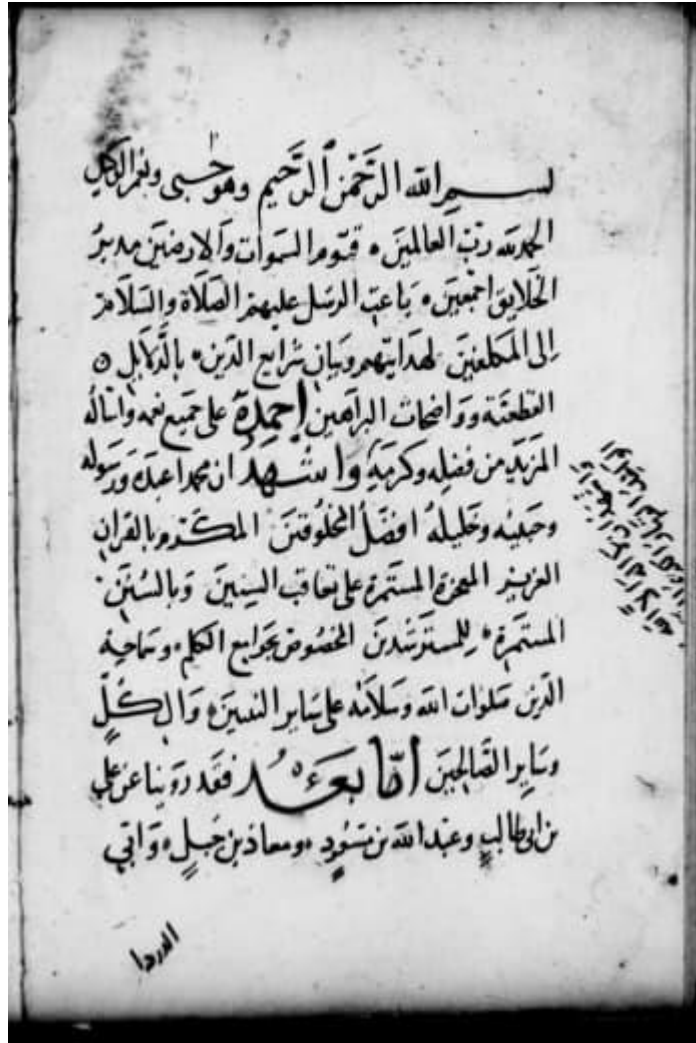 بسم الله الرحمن الرحيم وهو حسبى ونعم الوكيل
الحمد لله رب العالمين ه قيوم السموات والارضين مدبر
الخلايق اجمعين ه باعث الرسل عليهم الصلاة والسلام
الى المكلفين لهدايتهم وبيان شرايع الدين ه بالدلايل ه
القطعية وواضحات البراهين احمده على جميع نعمه واساله
المزيد من فضله وكرمه واشهد ان محمدا عبده ورسوله
وحبيبه وخليله افضل المخلوقين المكرم بالقران
العزيز المعجزة المستمرة على تعاقب السنين وبالسنن
المستمرة ه للمسترشدين المخصوص بجوامع الكلم ه وسماحة
الدين صلوات الله وسلامه على ساير النبيين ه وال كل
وساير الصالحين اما بعد فقد روينا عن على
بن ابى طالب وعبد الله بن مسعود ه ومعاذ بن جبل ه وابي
الدردا